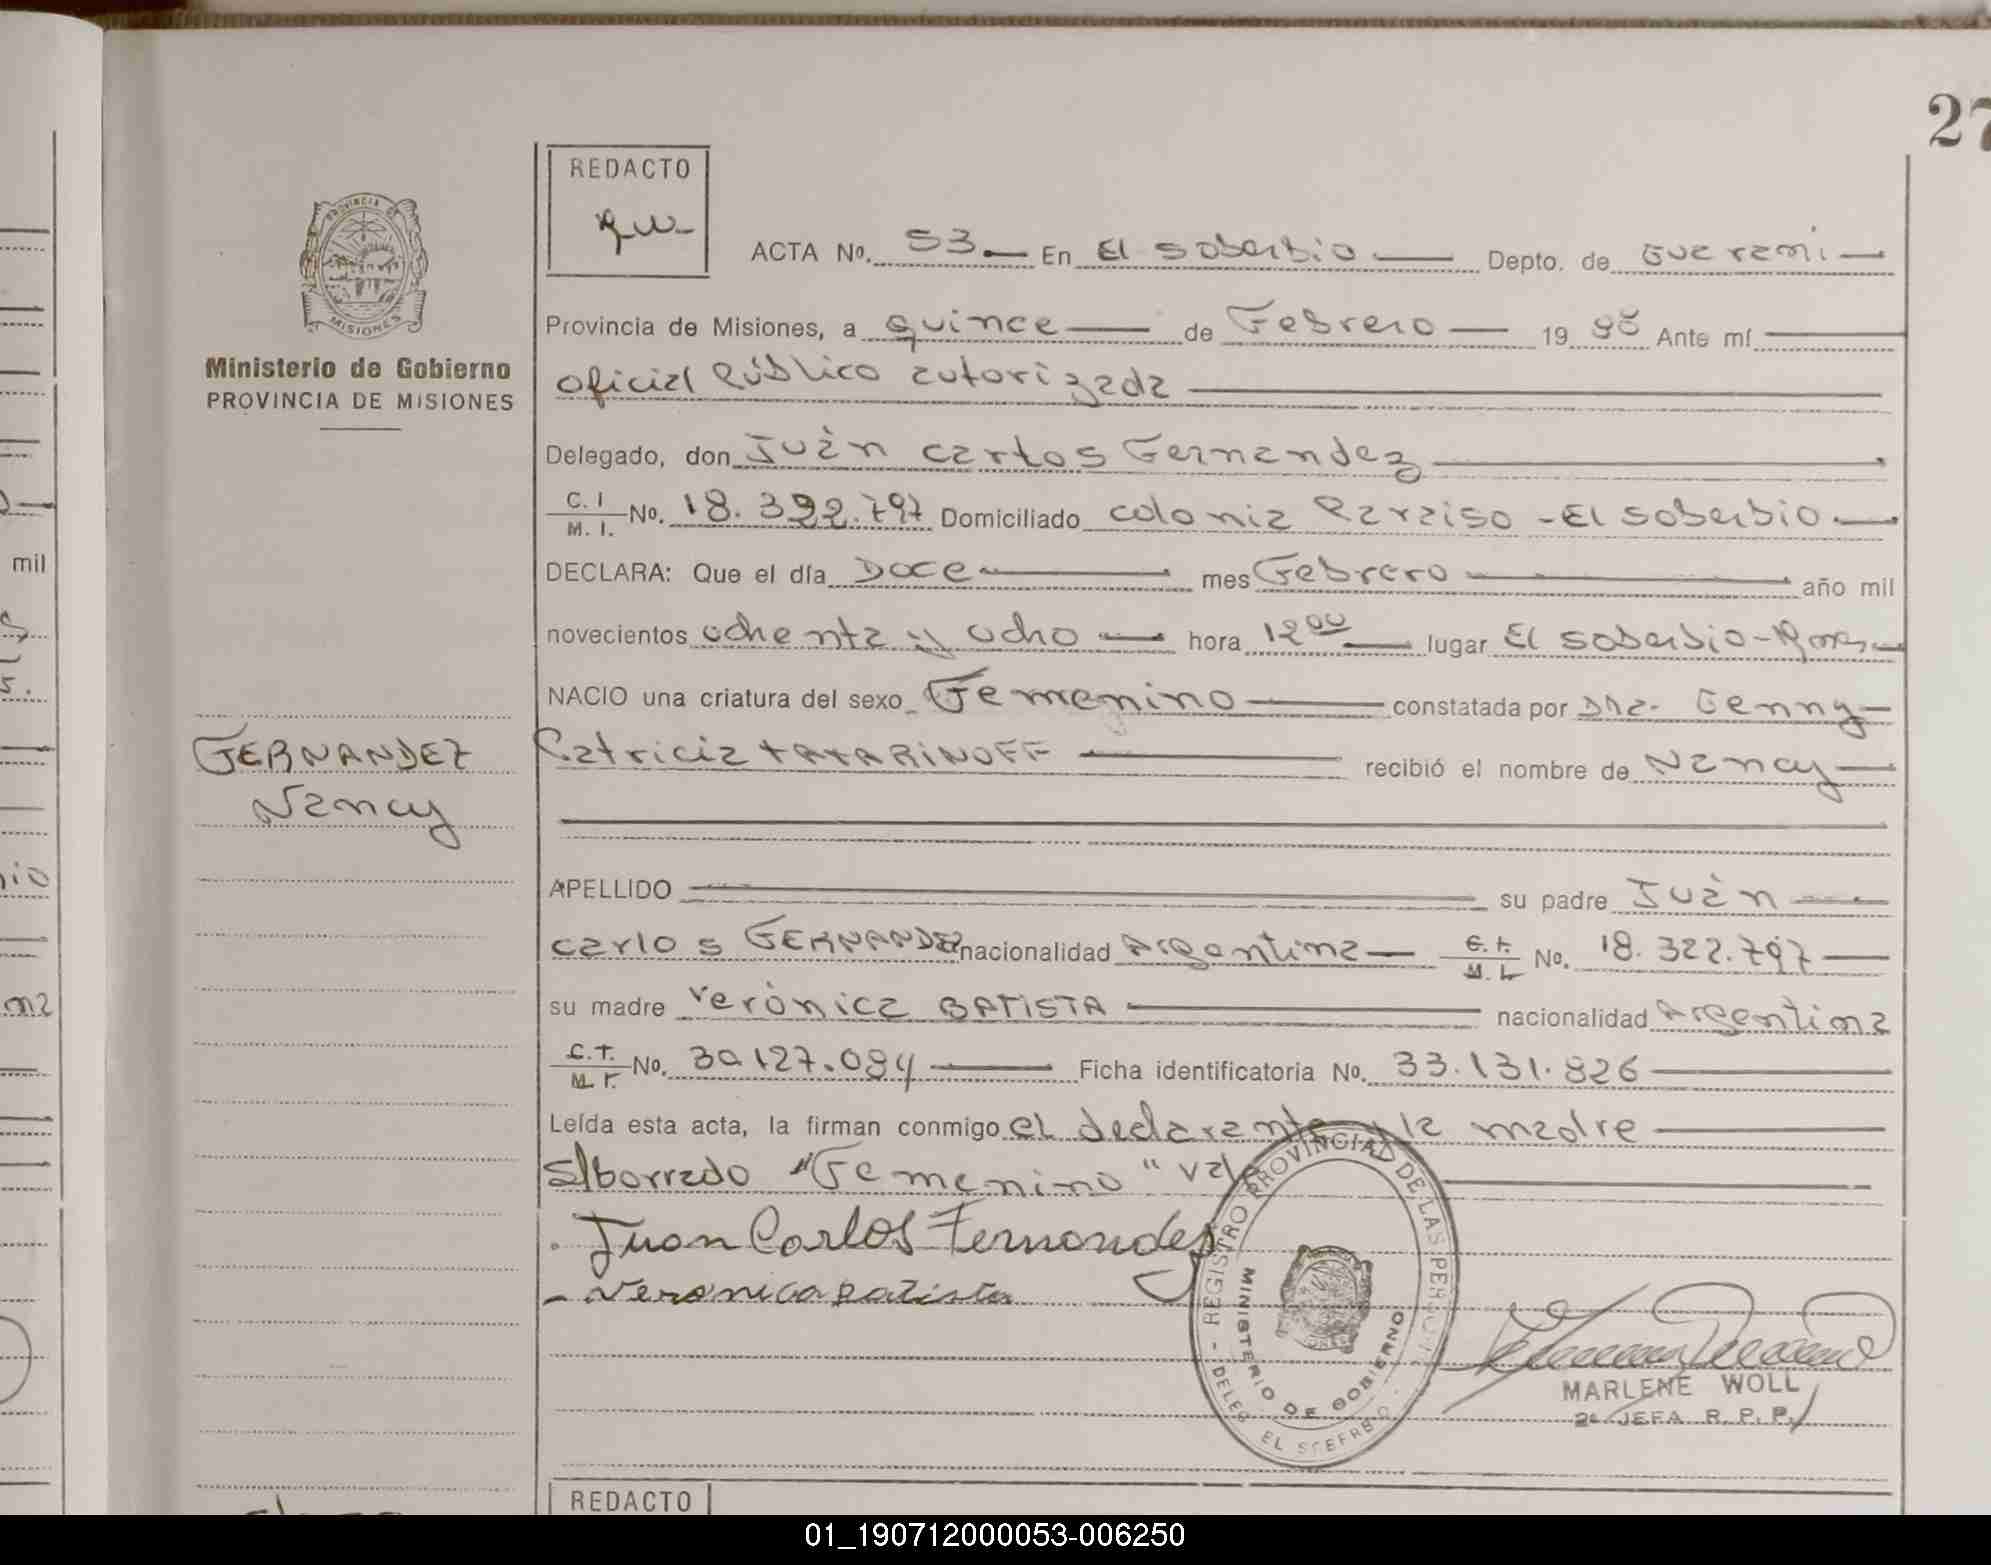 27
REDACTO
ACTA No. 53 En El soberbio Depto. de Guarani
Provincia de Misiones, a quince de Febrero 19 88 Ante mí
oficial Público autorizada
Delegado, don Juàn carlos Fernandez
C. I / M. I. No. 18.322.797 Domiciliado colonia Paraiso - El soberbio
DECLARA: Que el día Doce mes Febrero año mil
novecientos ochenta y ocho hora 12 00 lugar El soberbio -
NACIO una criatura del sexo Femenino constatada por Dra. Genny
Patricia TATARINOFF recibió el nombre de Nancy
APELLIDO su padre Juàn
carlos FERNANDEZ nacionalidad Argentina C.I. / M.I. No. 18.322.797
su madre Verònica BATISTA nacionalidad Argentina
C.I. / M.I. No. 30.127.094 Ficha identificatoria No. 33.131.826
Leída esta acta, la firman conmigo el declarante y la madre
s/borrado "Femenino" vale
Juan Carlos Fernandez
- veronica batista
MARLENE WOLL
2a JEFA R. P. P.
REGISTRO PROVINCIAL DE LAS PERSONAS
MINISTERIO DE GOBIERNO
PROVINCIA DE
MISIONES
Ministerio de Gobierno
PROVINCIA DE MISIONES
FERNANDEZ
Nancy
mil
REDACTO
01_190712000053-006250